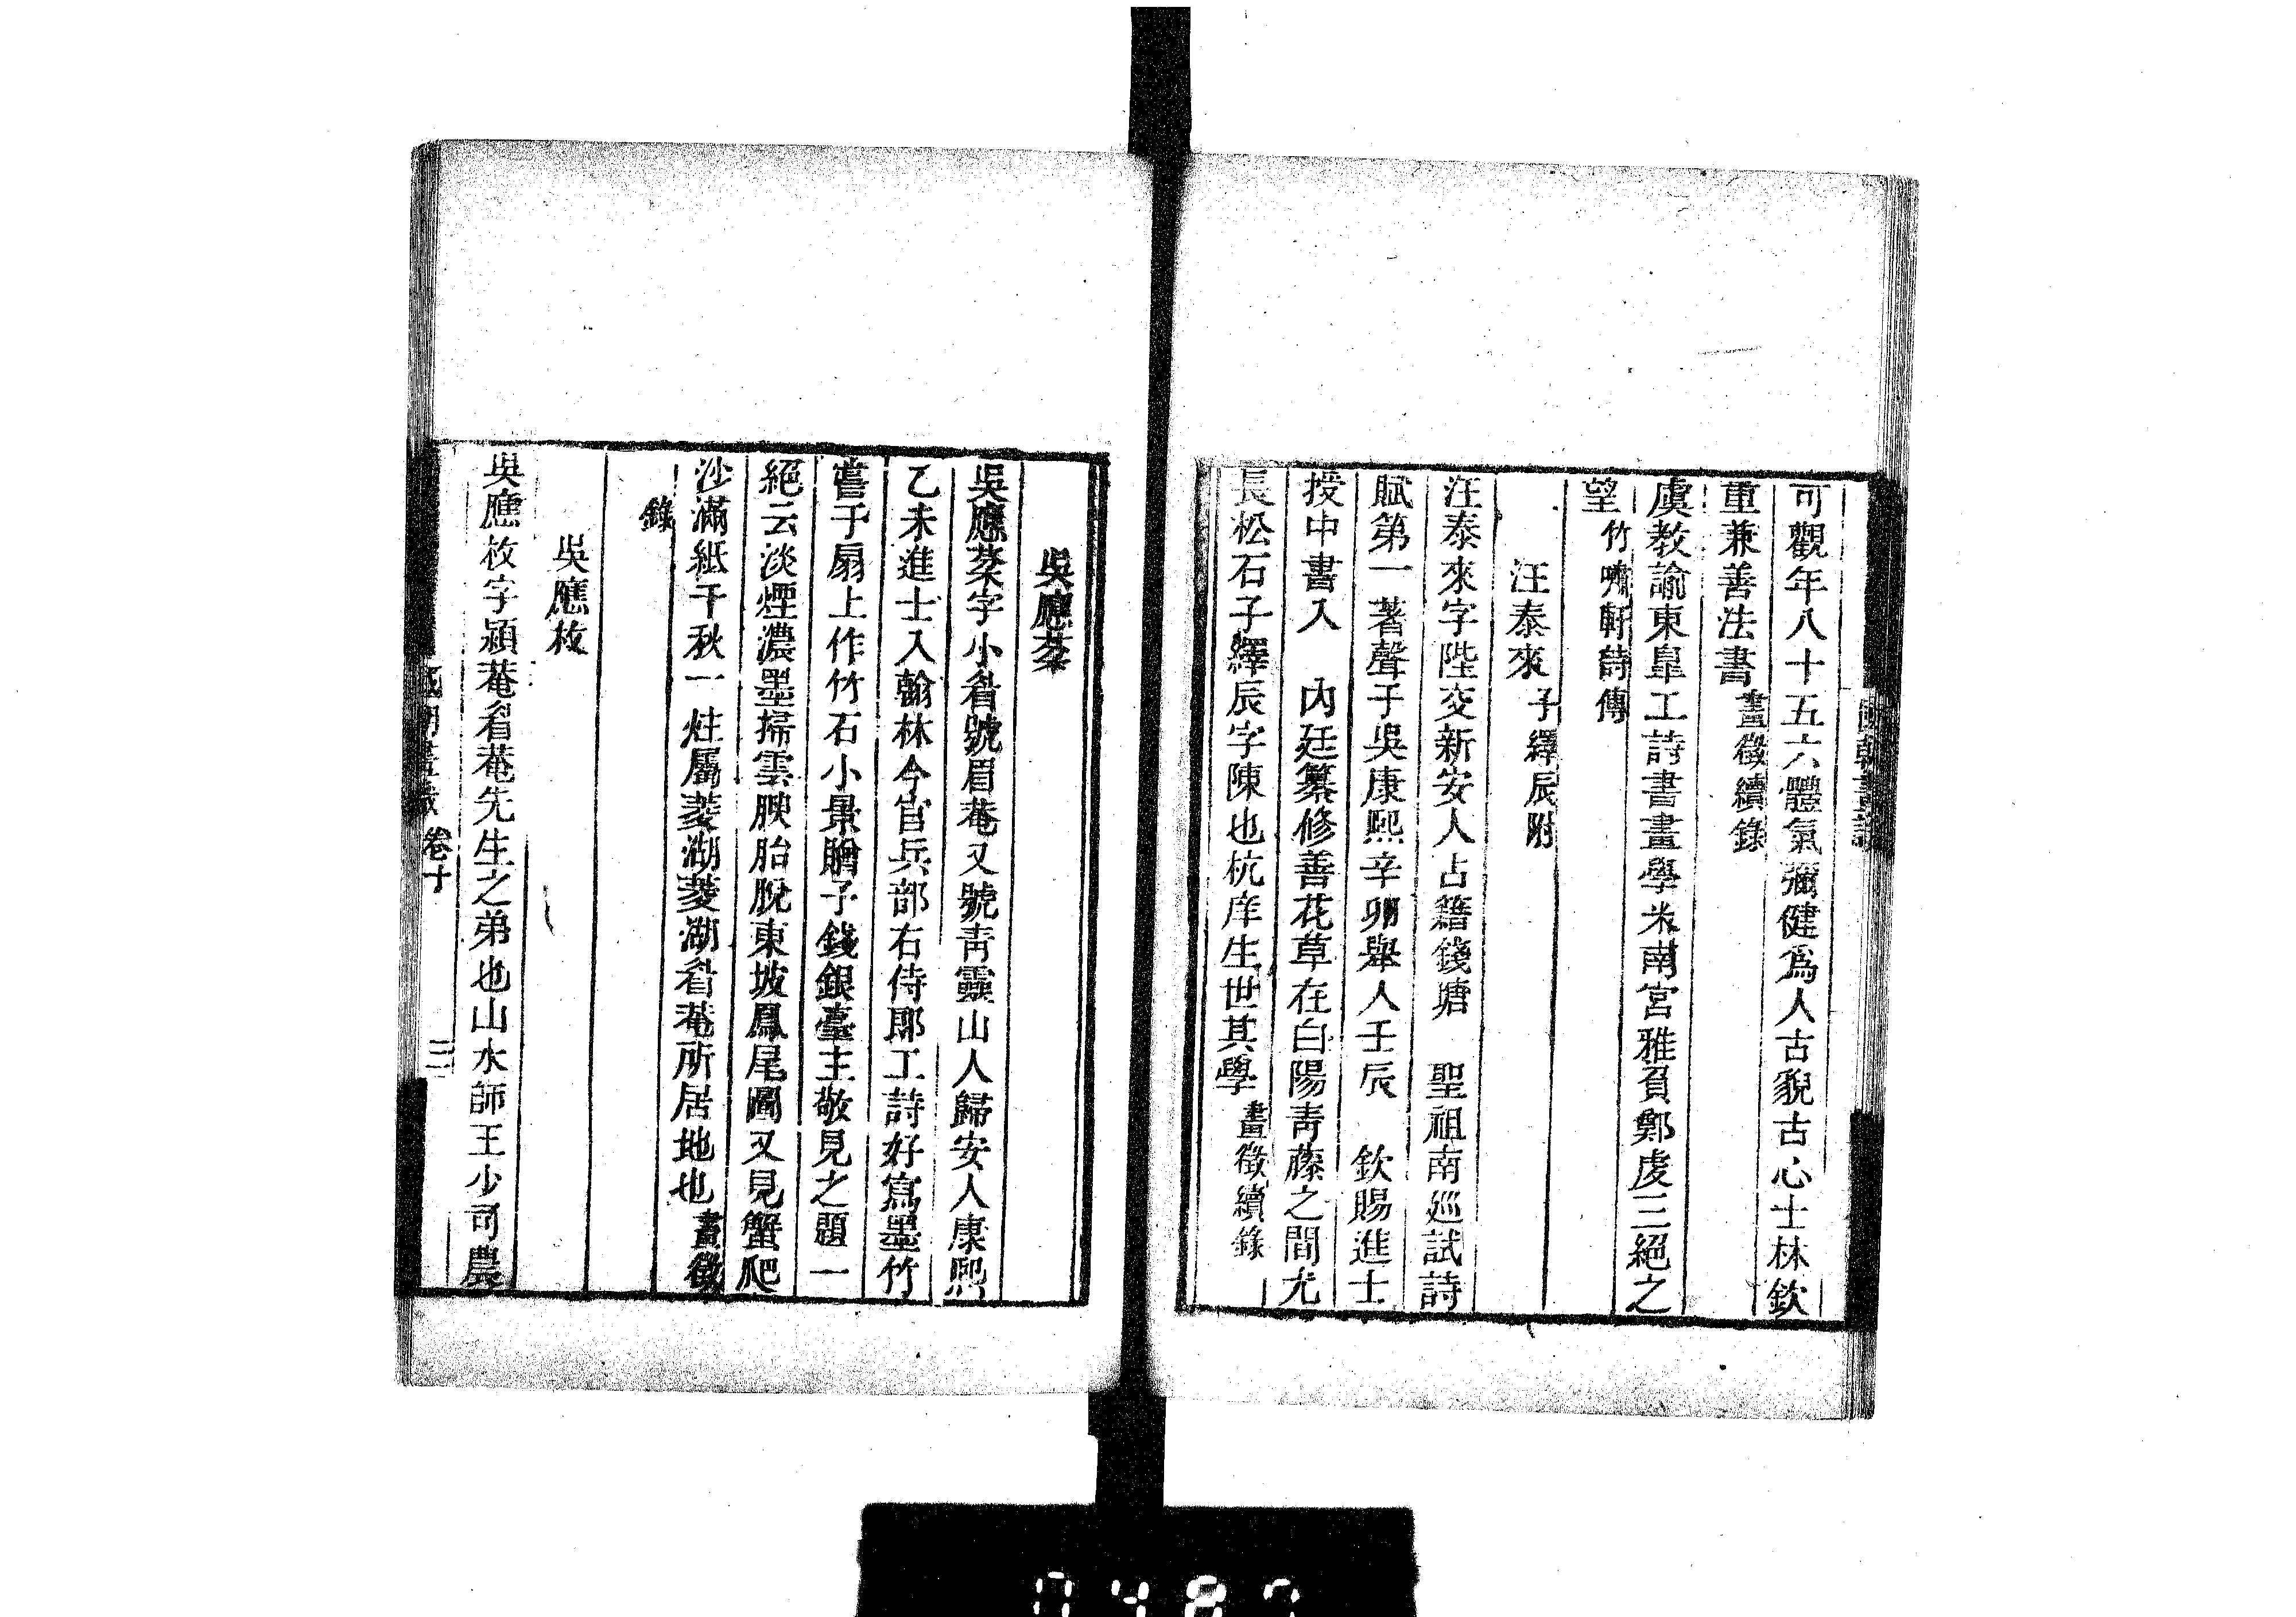 可觀年八十五六體氣彌健爲人古貌古心士林欽
重兼善法書畫徵續錄
虞教諭東臯工詩書畫學米南宮雅負鄭虔三絕之
望竹嘯軒詩傳
汪泰來子繹辰附
汪泰來字陛交新安人占籍錢塘 聖祖南巡試詩
賦第一著聲于吳康熙辛卯舉人壬辰 欽賜進士
授中書入 內廷纂修善花草在白陽青藤之間尤
長松石子繹辰字陳也杭庠生世其學畫徵續錄
吳應棻
吳應棻字小眉號眉菴又號靑靈山人歸安人康熙
乙未進士入翰林今官兵部右侍郎工詩好寫墨竹
嘗于扇上作竹石小景贈予錢銀臺主敬見之題一
絕云淡煙濃墨掃雲腴胎脫東坡鳳尾圖又見蟹爬
沙滿紙千秋一炷屬菱湖菱湖眉菴所居地也畫徵
錄
吳應枚
吳應枚字潁菴眉菴先生之弟也山水師王少司農
國朝畫識 卷十 三
0487